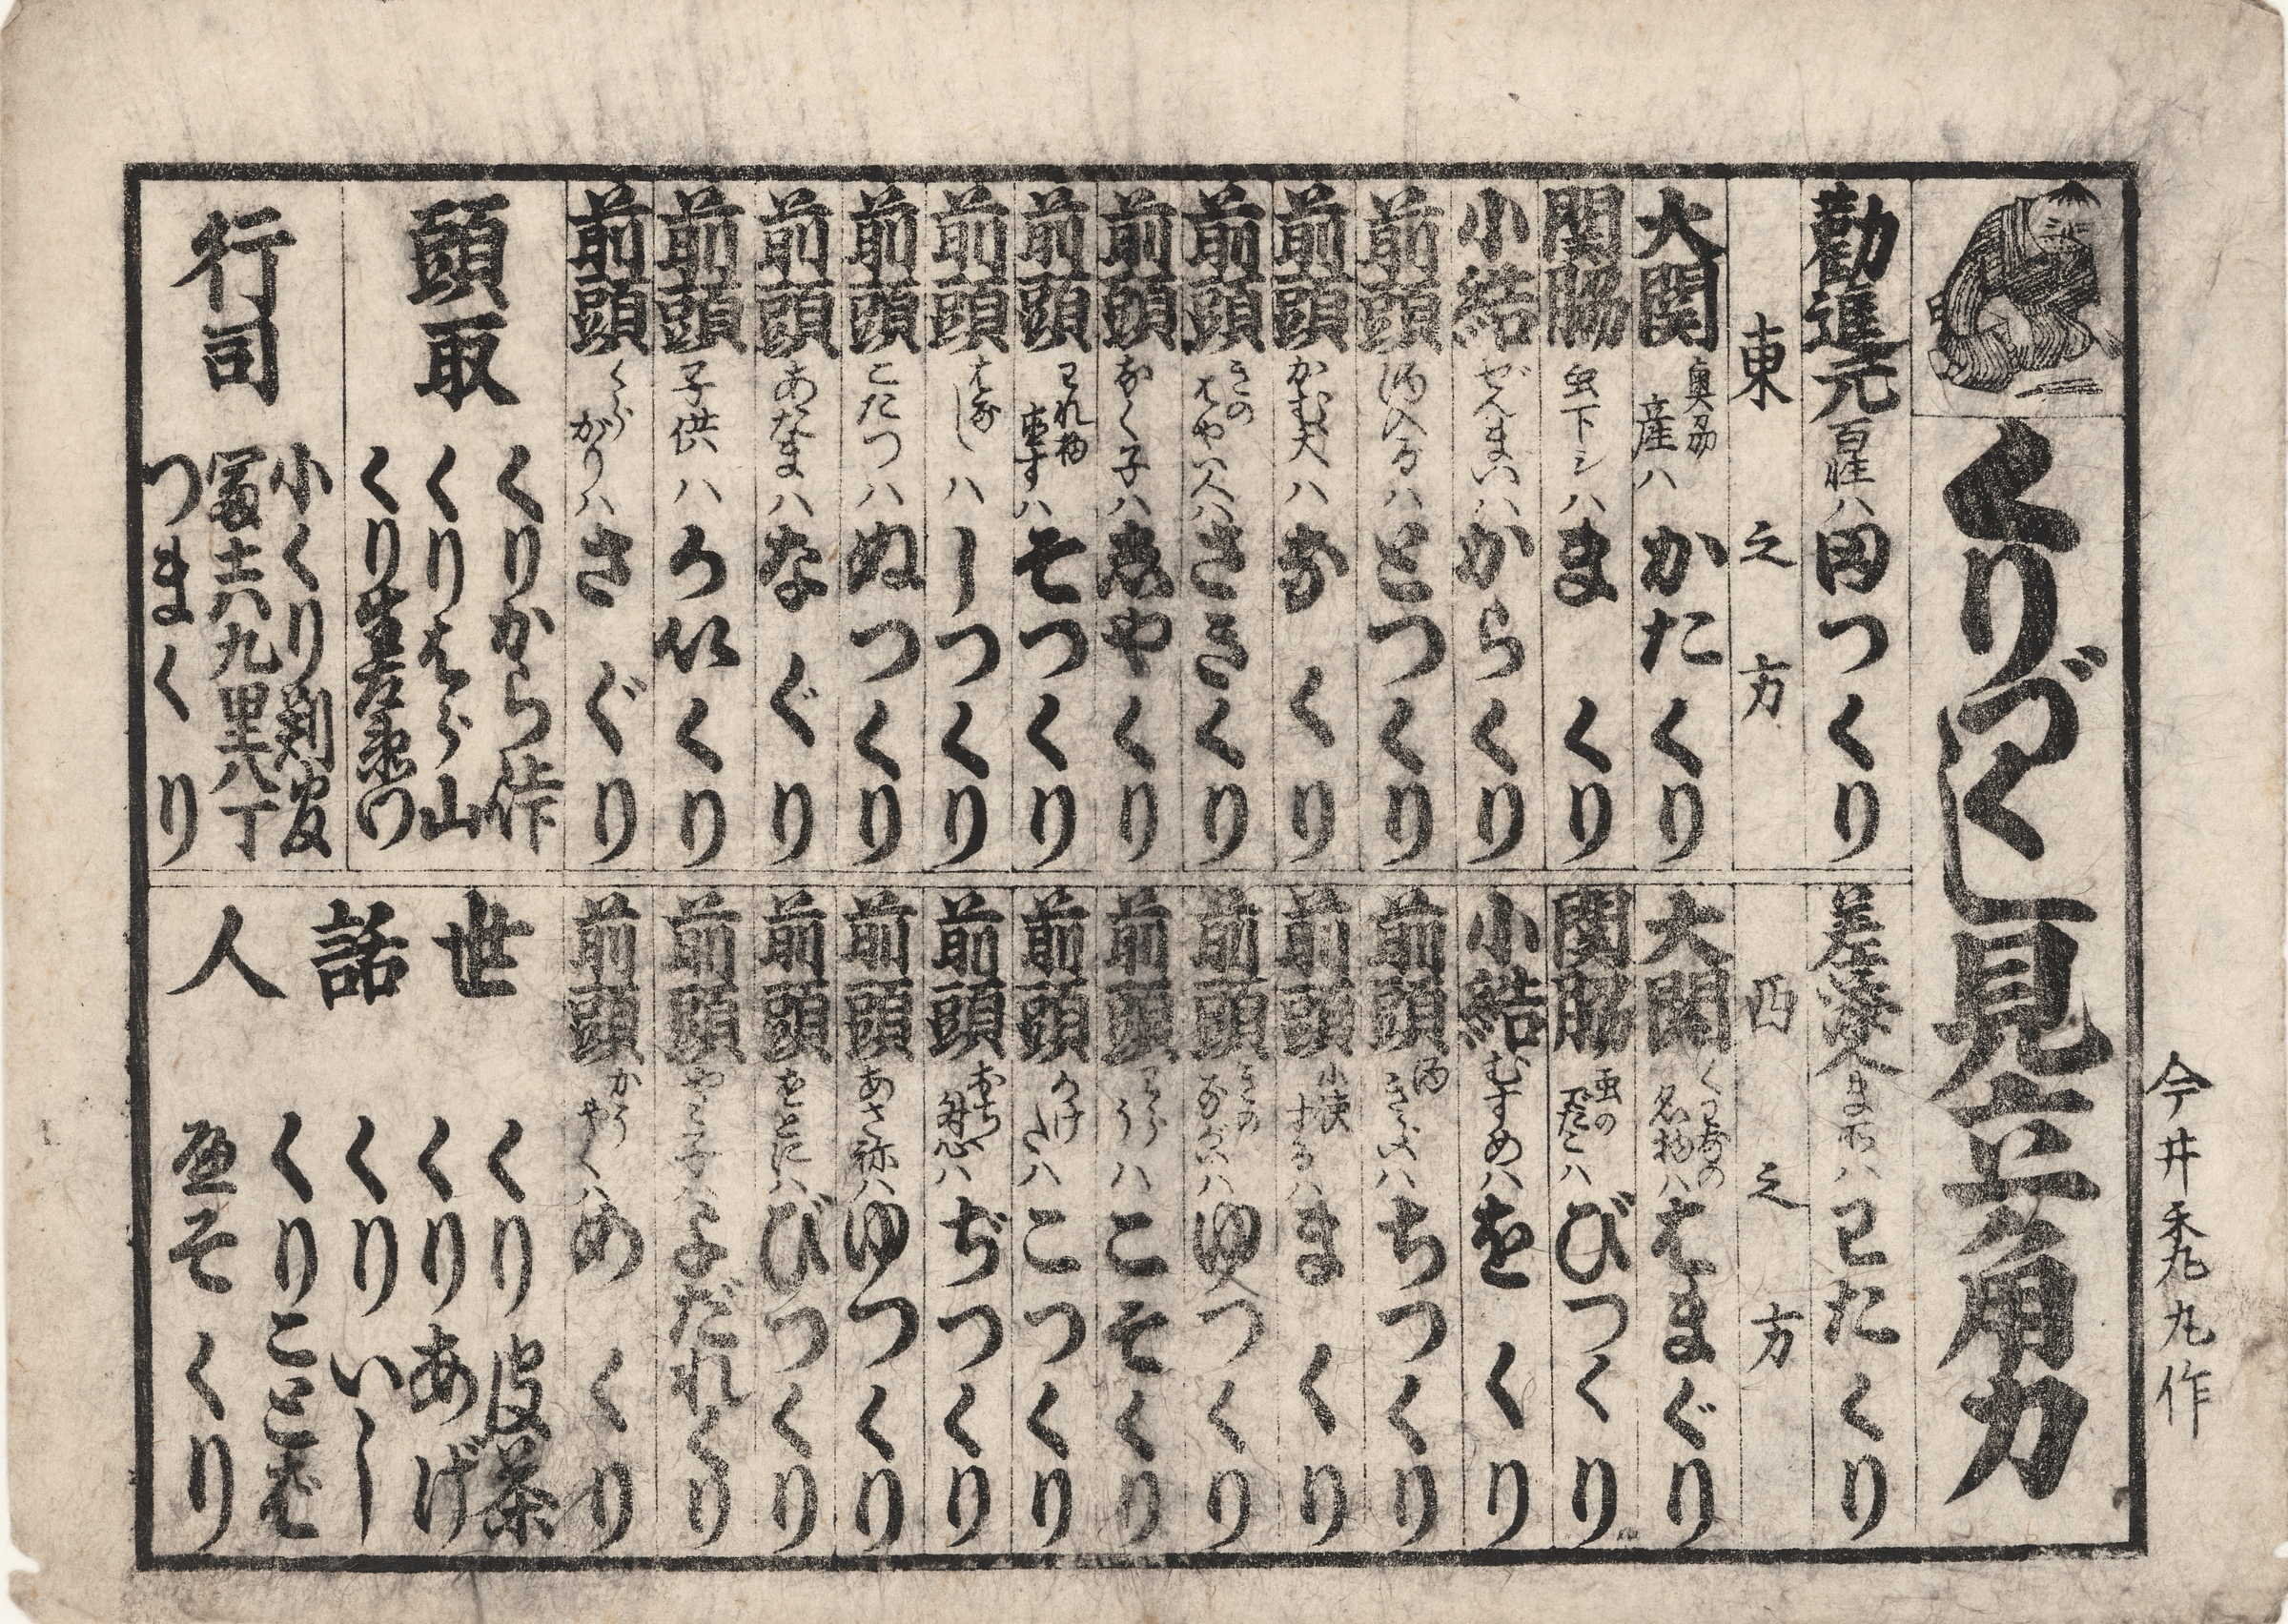 くりづくし見立角力
勧進元 百姓ハ 田つくり
東之方
大関 奥州産ハ かたくり
関脇 虫下シハ まくり
小結 ぜんまいハ からくり
前頭 酒入るハ とつくり
前頭 かむ犬ハ がくり
前頭 きのはやい人ハ さきくり
前頭 なく子ハ しやくり
前頭 われ物直すハ そつくり
前頭 はなしハ しつくり
前頭 こたつハ ぬつくり
前頭 あたまハ なぐり
前頭 子供ハ ういくり
前頭 くらがりハ さぐり
頭取
くりから作
くりはら山
くり生左衛門
行司
小くり判官
冨士六九里八丁
つまくり
差添人 ハ わたくり
西之方
大関 くわなの名物ハ はまぐり
関脇 虫のだこハ びつくり
小結 むすめハ をくり
前頭 酒きらいハ ちつくり
前頭 小便するハ まくり
前頭 きのながいハ ゆつくり
前頭 わらうハ こそくり
前頭 かけたハ こつくり
前頭 おちるハ ぢつくり
前頭 あさ寐ハ ゆつくり
前頭 をとにハ びつくり
前頭 やゝ子ハ よだれくり
前頭 かうやくハ めくり
世話人
くり皮茶
くりあげ
くりいし
くりことば
へそくり
今井黍丸作